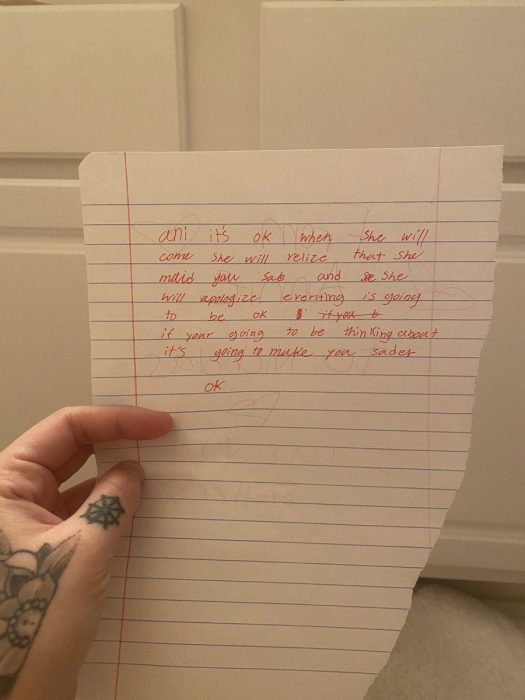 ani it's ok when she will
come she will relize that she
maid you sad and she
will apologize everiting is going
to be ok if you b
if your going to be thinking about
it's going to make you sader
ok